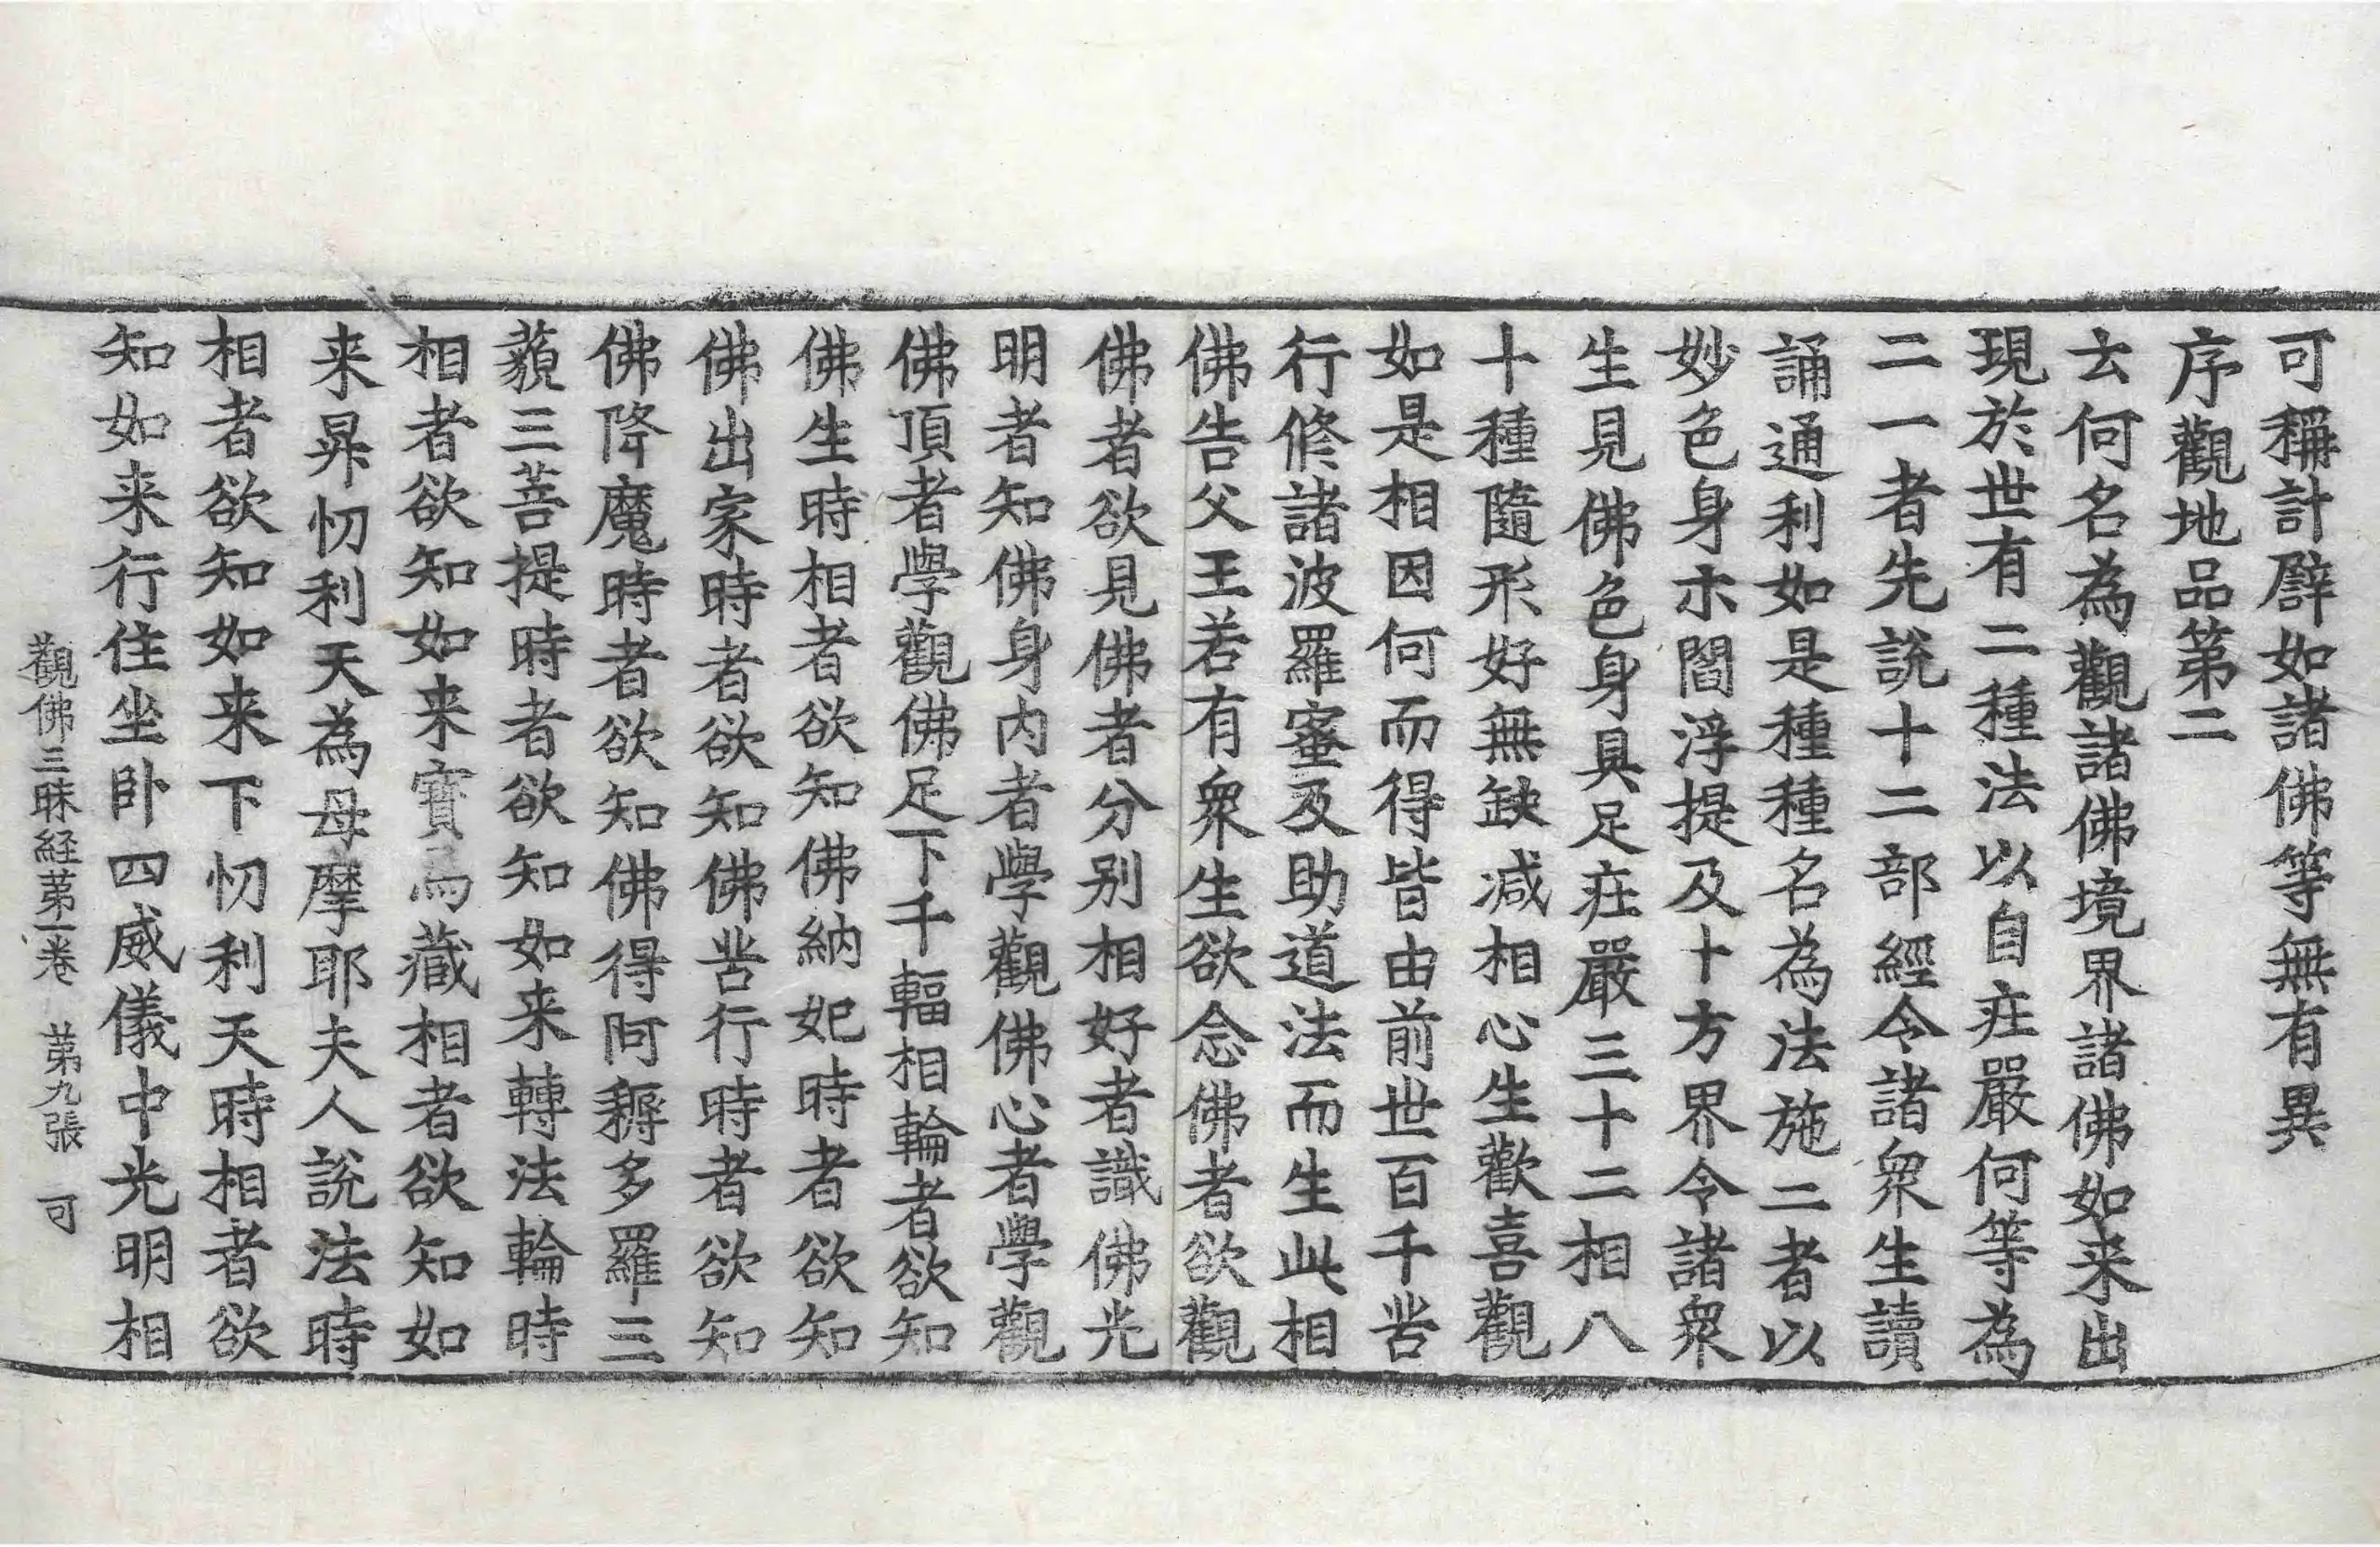 可稱計譬如諸佛等無有異
序觀地品第二
云何名為觀諸佛境界諸佛如来出
現於世有二種法以自庄嚴何等為
二一者先說十二部經令諸衆生讀
誦通利如是種種名為法施二者以
妙色身示閻浮提及十方界令諸衆
生見佛色身具足庄嚴三十二相八
十種隨形好無缺减相心生歡喜觀
如是相因何而得皆由前世百千苦
行修諸波羅蜜及助道法而生此相
佛告父王若有衆生欲念佛者欲觀
佛者欲見佛者分别相好者識佛光
明者知佛身内者學觀佛心者學觀
佛頂者學觀佛足下千輻相輪者欲知
佛生時相者欲知佛納妃時者欲知
佛出家時者欲知佛苦行時者欲知
佛降魔時者欲知佛得阿耨多羅三
藐三菩提時者欲知如来轉法輪時
相者欲知如来寶馬藏相者欲知如
来昇忉利天為母摩耶夫人說法時
相者欲知如来下忉利天時相者欲
知如来行住坐卧四威儀中光明相
觀佛三昧経苐一卷 苐九張 可